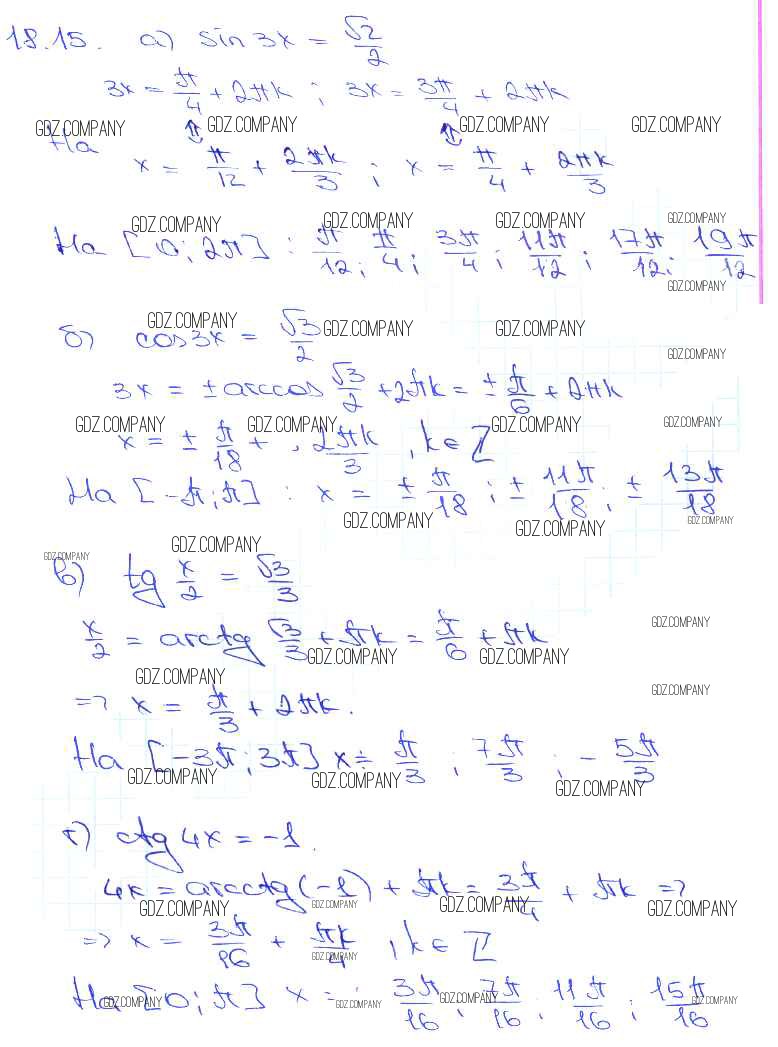 18.15. а) sin 3x = √2/2
3x = π/4 + 2πk ; 3x = 3π/4 + 2πk
GDZ.COMPANY ⇕ GDZ.COMPANY ⇕ GDZ.COMPANY GDZ.COMPANY
На x = π/12 + 2πk/3 ; x = π/4 + 2πk/3
GDZ.COMPANY GDZ.COMPANY GDZ.COMPANY GDZ.COMPANY
На [0; 2π] : π/12; π/4; 3π/4; 11π/12; 17π/12; 19π/12
GDZ.COMPANY
GDZ.COMPANY GDZ.COMPANY GDZ.COMPANY
б) cos 3x = √3/2
GDZ.COMPANY
3x = ± arccos √3/2 + 2πk = ± π/6 + 2πk
GDZ.COMPANY GDZ.COMPANY GDZ.COMPANY GDZ.COMPANY
x = ± π/18 + 2πk/3, k ∈ Z
На [-π; π] : x = ± π/18 ; ± 11π/18 ; ± 13π/18
GDZ.COMPANY GDZ.COMPANY GDZ.COMPANY
GDZ.COMPANY GDZ.COMPANY
в) tg x/2 = √3/3
GDZ.COMPANY
x/2 = arctg √3/3 + πk = π/6 + πk
GDZ.COMPANY GDZ.COMPANY
GDZ.COMPANY GDZ.COMPANY
=> x = π/3 + 2πk.
На [-3π; 3π] x = π/3 ; 7π/3 ; - 5π/3
GDZ.COMPANY GDZ.COMPANY GDZ.COMPANY
г) ctg 4x = -1.
4x = arcctg(-1) + πk = 3π/4 + πk =>
GDZ.COMPANY GDZ.COMPANY GDZ.COMPANY GDZ.COMPANY
=> x = 3π/16 + πk/4, k ∈ Z
GDZ.COMPANY
На [0; π] x = 3π/16 ; 7π/16 ; 11π/16 ; 15π/16
GDZ.COMPANY GDZ.COMPANY GDZ.COMPANY GDZ.COMPANY